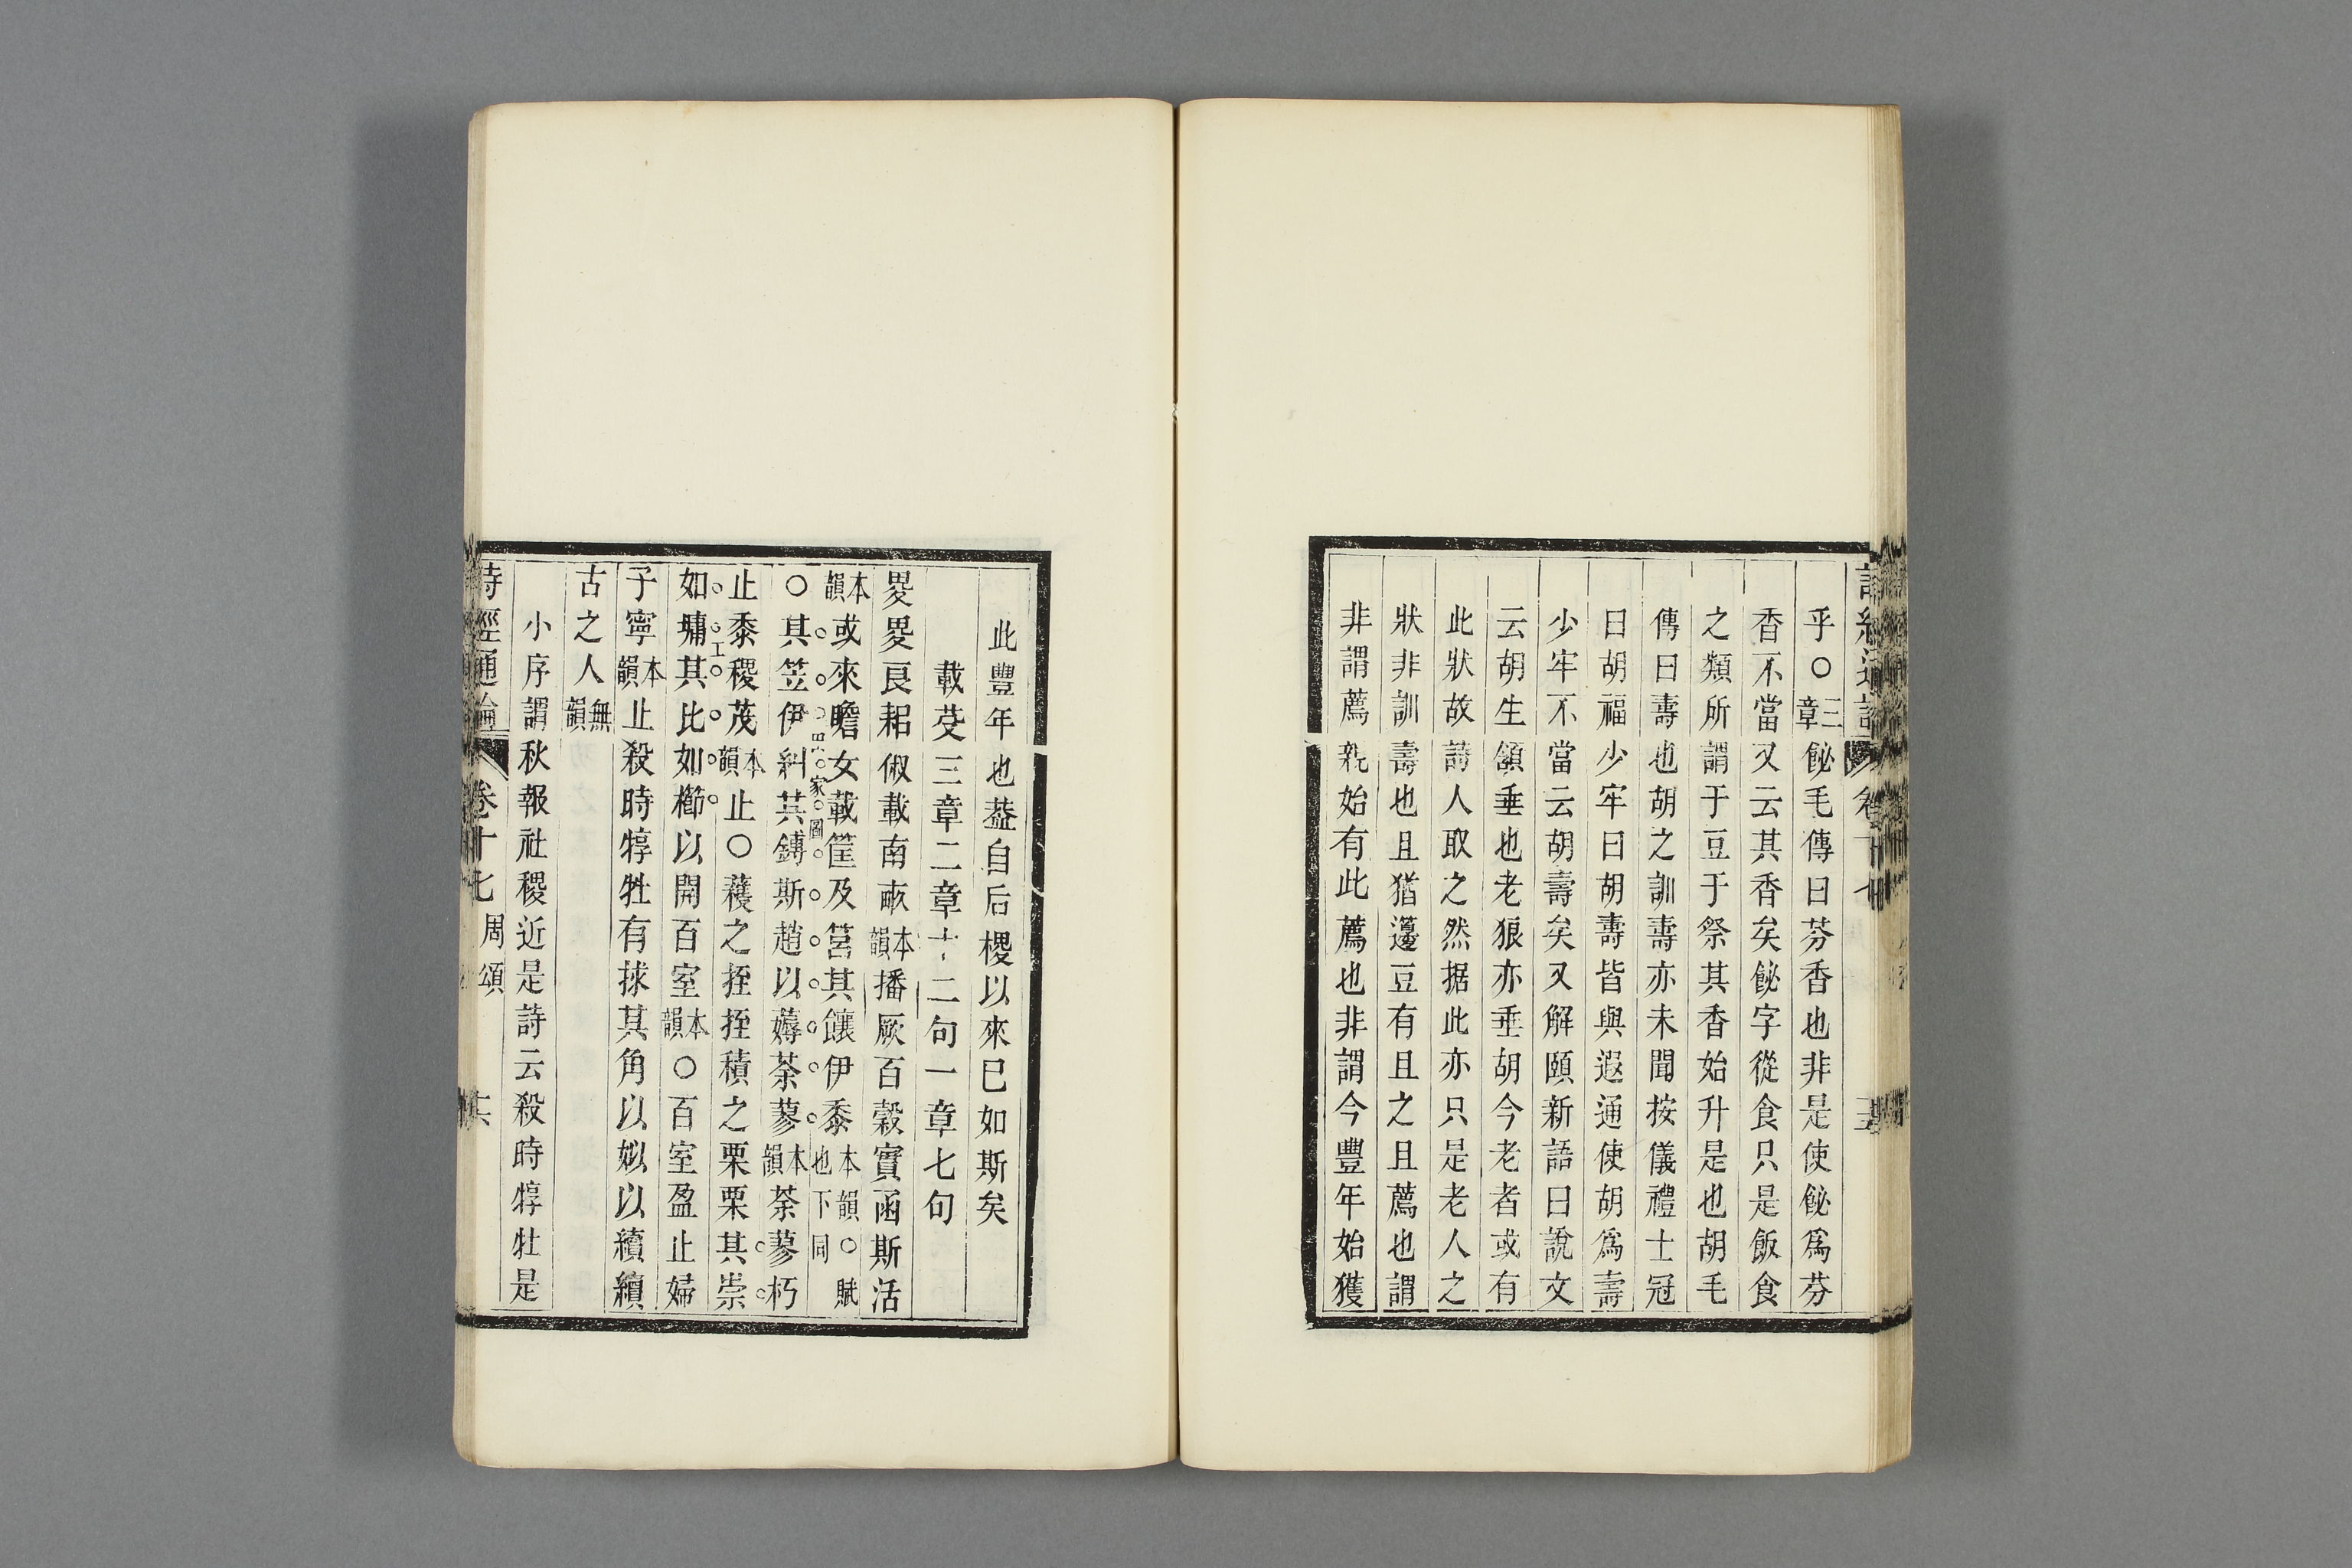 乎○三章飶毛傳曰芬香也非是使飶爲芬
香不當又云其香矣飶字從食只是飯食
之類所謂于豆于祭其香始升是也胡毛
傳曰壽也胡之訓壽亦未聞按儀禮士冠
曰胡福少牢曰胡壽皆與遐通使胡爲壽
少牢不當云胡壽矣又解頤新語曰說文
云胡生頷垂也老狼亦垂胡今老者或有
此狀故詩人取之然据此亦只是老人之
狀非訓壽也且猶籩豆有且之且薦也謂
非謂薦親始有此薦也非謂今豐年始獲
此豐年也葢自后稷以來巳如斯矣
載芟三章二章十二句一章七句
畟畟良耜俶載南畝本韻播厥百穀實函斯活
本韻或來瞻女載筐及筥其饟伊黍本韻○賦也下同
○其笠伊糾其鎛斯趙以薅荼蓼本韻荼蓼朽
止黍稷茂本韻止○穫之挃挃積之栗栗其崇
如墉其比如櫛以開百室本韻○百室盈止婦
子寧本韻止殺時犉牡有捄其角以姒以續續
古之人無韻
小序謂秋報社稷近是詩云殺時犉牡是
詩經通論 卷十七 周頌